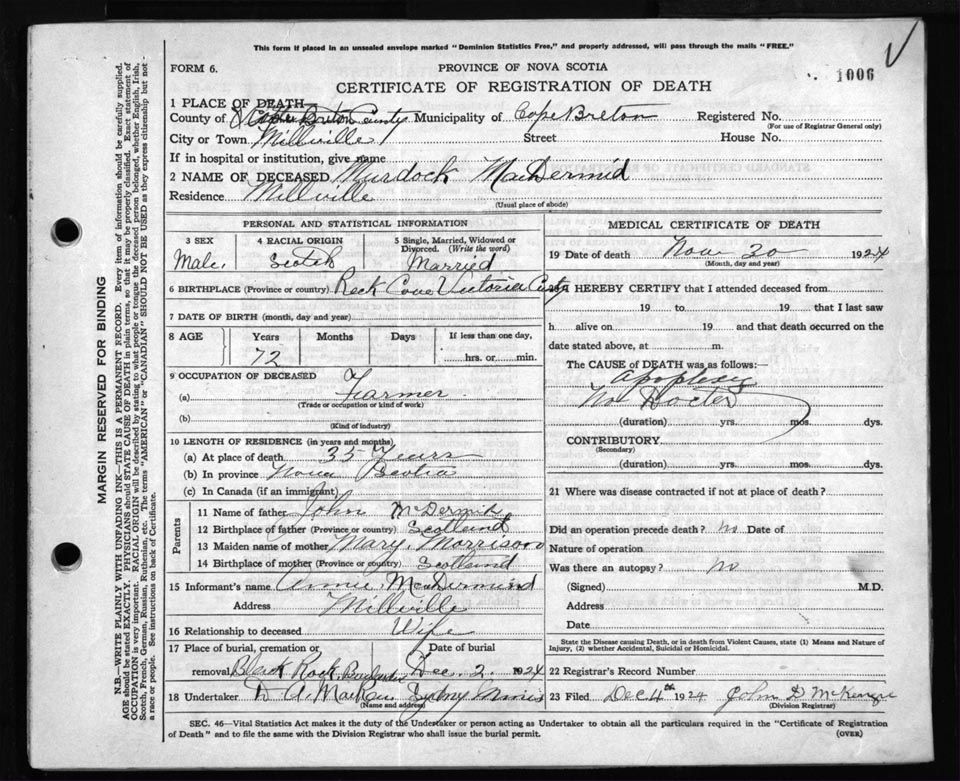 This form if placed in an unsealed envelope marked "Dominion Statistics Free," and properly addressed, will pass through the mails "FREE."
FORM 6.
PROVINCE OF NOVA SCOTIA
1006
CERTIFICATE OF REGISTRATION OF DEATH
1 PLACE OF DEATH
County of Cape Breton County Municipality of Cape Breton Registered No.
(For use of Registrar General only)
City or Town Millville Street House No.
If in hospital or institution, give name
2 NAME OF DECEASED Murdock MacDermid
Residence Millville
(Usual place of abode)
PERSONAL AND STATISTICAL INFORMATION
3 SEX 4 RACIAL ORIGIN 5 Single, Married, Widowed or Divorced. (Write the word)
Male. Scotch Married
6 BIRTHPLACE (Province or country) Reck Cove Victoria Cnty
7 DATE OF BIRTH (month, day and year)
8 AGE Years Months Days If less than one day,
72 hrs. or min.
9 OCCUPATION OF DECEASED
(a) Farmer
(Trade or occupation or kind of work)
(b)
(Kind of industry)
10 LENGTH OF RESIDENCE (in years and months)
(a) At place of death 35 Years
(b) In province Nova Scotia
(c) In Canada (if an immigrant)
Parents
11 Name of father John McDermid
12 Birthplace of father (Province or country) Scotland
13 Maiden name of mother Mary Morrison
14 Birthplace of mother (Province or country) Scotland
15 Informant's name Annie MacDermind
Address Millville
16 Relationship to deceased Wife
17 Place of burial, cremation or Date of burial
removal Black Rock, Dec. 2. 1924
18 Undertaker D A Sydney Mines
(Name and address)
MEDICAL CERTIFICATE OF DEATH
19 Date of death Nov 30 1924
(Month, day and year)
20 I HEREBY CERTIFY that I attended deceased from
19 to 19 that I last saw
h alive on 19 and that death occurred on the
date stated above, at m.
The CAUSE of DEATH was as follows:—
apoplexy
No Docter
(duration) yrs. mos. dys.
CONTRIBUTORY
(Secondary)
(duration) yrs. mos. dys.
21 Where was disease contracted if not at place of death?
Did an operation precede death? No Date of
Nature of operation
Was there an autopsy? No
(Signed) M.D.
Address
Date
State the Disease causing Death, or in death from Violent Causes, state (1) Means and Nature of Injury, (2) whether Accidental, Suicidal or Homicidal.
22 Registrar's Record Number
23 Filed Dec 4th 1924 John D McKenzie
(Division Registrar)
SEC. 46—Vital Statistics Act makes it the duty of the Undertaker or person acting as Undertaker to obtain all the particulars required in the "Certificate of Registration
of Death" and to file the same with the Division Registrar who shall issue the burial permit. (OVER)
MARGIN RESERVED FOR BINDING
N.B.—WRITE PLAINLY WITH UNFADING INK—THIS IS A PERMANENT RECORD. Every item of information should be carefully supplied.
AGE should be stated EXACTLY. PHYSICIANS should STATE CAUSE OF DEATH in plain terms, so that it may be properly classified. Exact statement of
OCCUPATION is very important. RACIAL ORIGIN will be described by stating to what people or tongue the deceased person belonged, whether English, Irish,
Scotch, French, German, Russian, Ruthenian, etc. The terms "AMERICAN" or "CANADIAN" SHOULD NOT BE USED as they express citizenship but not
a race or people. See instructions on back of Certificate.